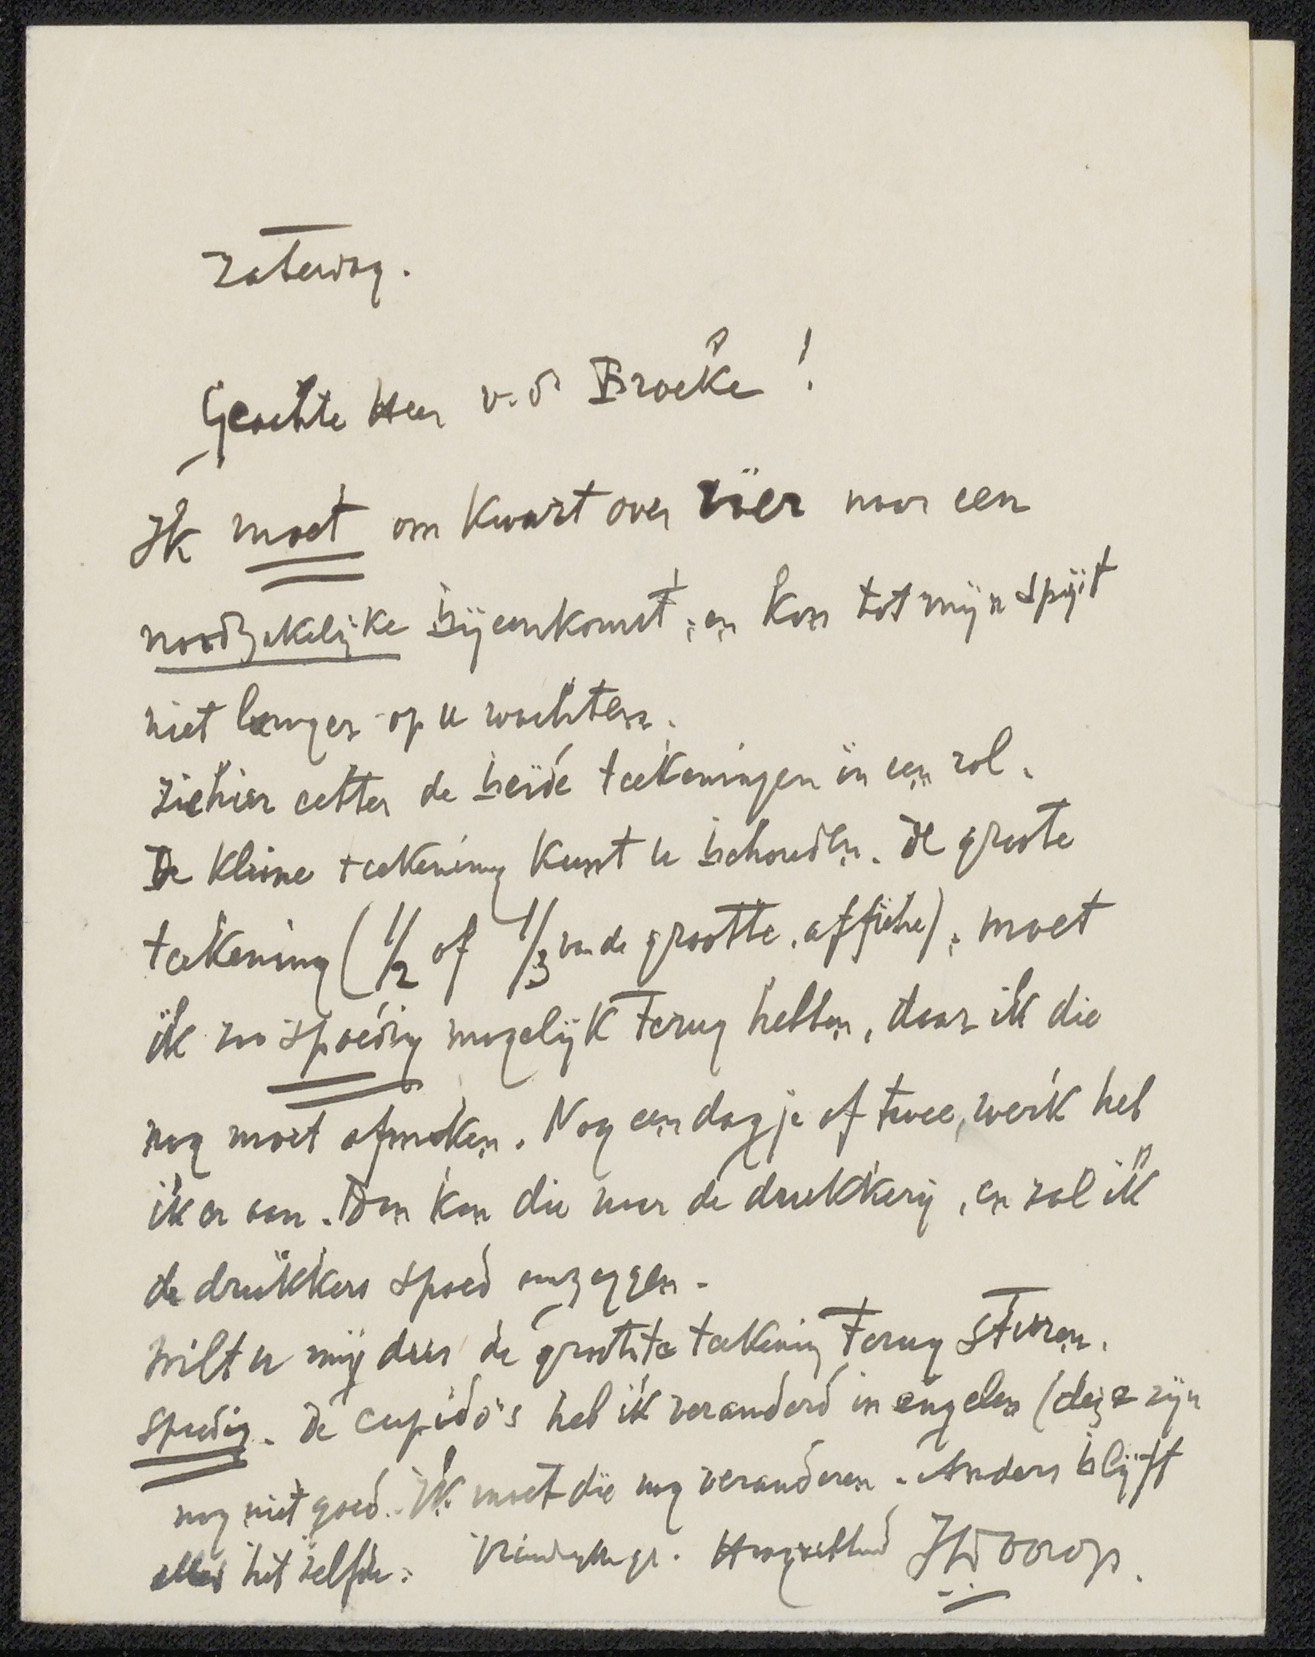 Zaterdag.
Geachte Heer v.d Broeke!
Ik moet om kwart over vier naar een
noodzakelijke bijeenkomst, en kan tot mijn spijt
niet langer op u wachten.
Ziehier echter de beide teekeningen in een rol.
De kleine teekening kunt u behouden. De groote
teekening (1/2 of 1/3 van de grootte affiche), moet
ik zoo spoedig mogelijk terug hebben, daar ik die
nog moet afmaken. Nog een dagje of twee, werk heb
ik er aan. Dan kan die naar de drukkerij, en zal ik
de drukkers spoed aanzeggen.
Wilt u mij dus de grootste teekening terug sturen.
Spoedig. De cupido's heb ik veranderd in engelen (deze zijn
nog niet goed. Ik moet die nog veranderen. Anders blijft
alles het zelfde. Hoogachtend JThToorop.